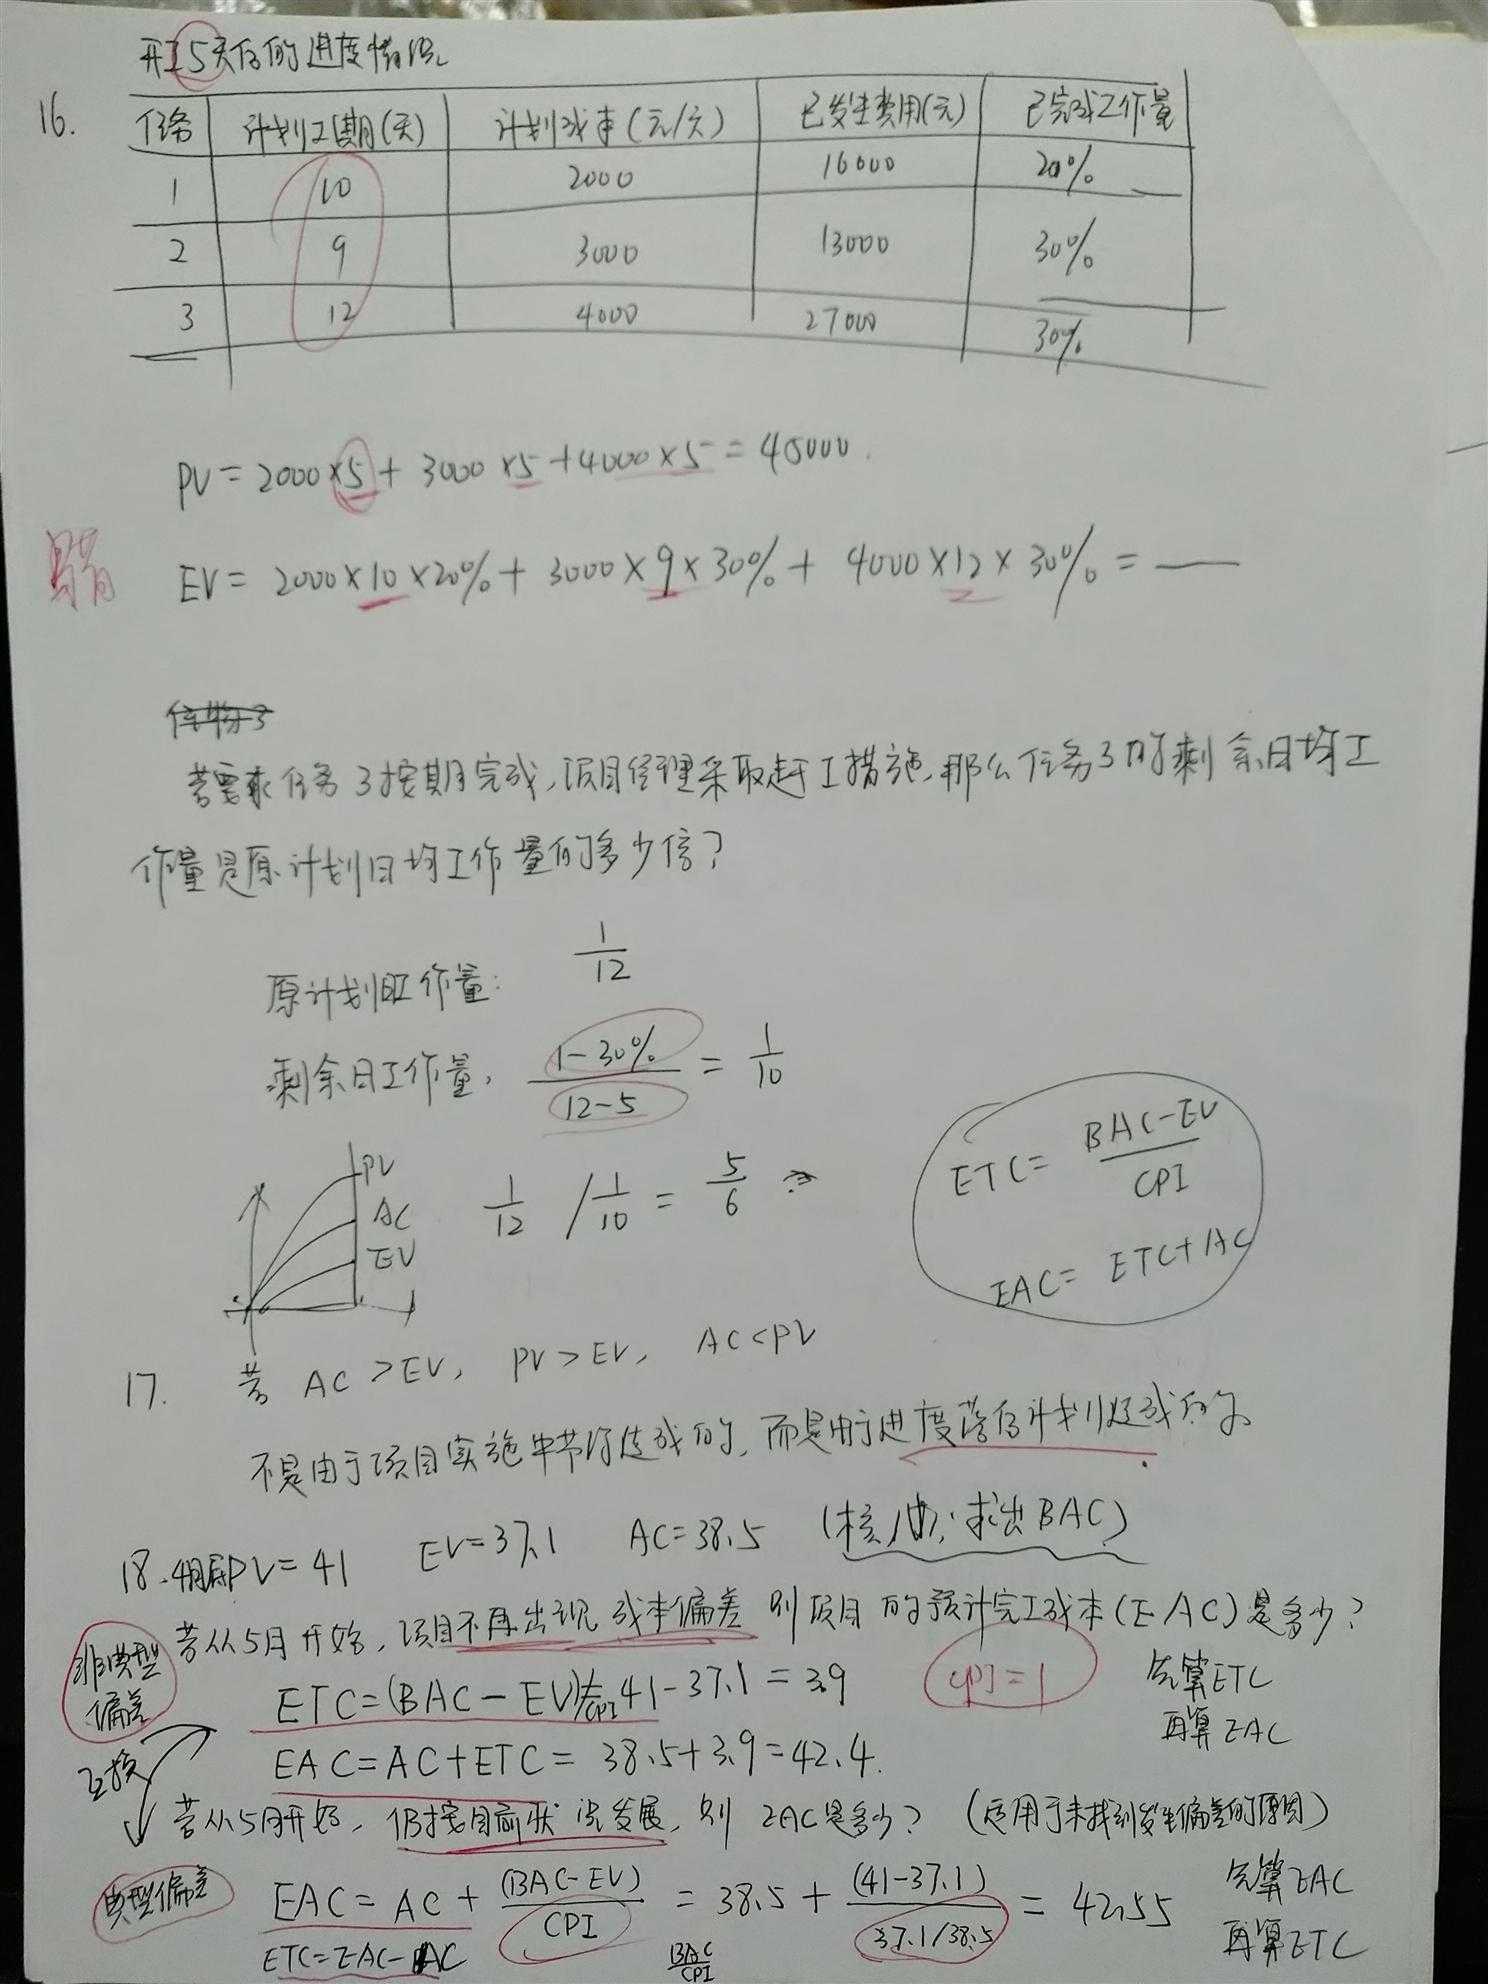 开工5天后的进度情况
16.
任务 计划工期(天) 计划成本(元/天) 已发生费用(元) 已完成工作量
1 10 2000 16000 20%
2 9 3000 13000 30%
3 12 4000 27000 30%
PV = 2000×5 + 3000×5 + 4000×5 = 45000.
EV = 2000×10×20% + 3000×9×30% + 4000×12×30% = —
若要求任务3按期完成,项目经理采取赶工措施,那么任务3的剩余日均工
作量是原计划日均工作量的多少倍?
原计划日工作量: 1/12
剩余日工作量, (1-30%)/(12-5) = 1/10
1/12 / 1/10 = 5/6
PV
AC
EV
ETC = (BAC-EV)/CPI
EAC = ETC+AC
17. 若 AC>EV, PV>EV, AC<PV
不是由于项目实施中节约造成的,而是由于进度落后计划造成的。
18.4月底PV=41 EV=37.1 AC=38.5 (核心:求出BAC)
若从5月开始,项目不再出现成本偏差 则项目的预计完工成本(EAC)是多少?
非典型
偏差
ETC=(BAC-EV)/CPI 41-37.1=3.9 CPI=1 先算ETC
EAC=AC+ETC=38.5+3.9=42.4. 再算EAC
互换
若从5月开始,仍按目前状况发展,则 EAC是多少? (适用于未找到发生偏差的原因)
典型偏差
EAC=AC+(BAC-EV)/CPI=38.5+(41-37.1)/(37.1/38.5)=42.55 先算EAC
ETC=EAC-AC BAC/CPI 再算ETC